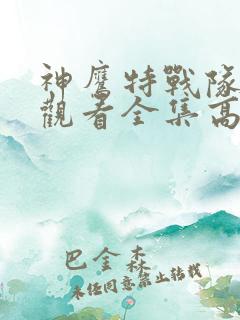 神鹰特戰隊
觀看全集高
巴金森
未经同意禁止转载